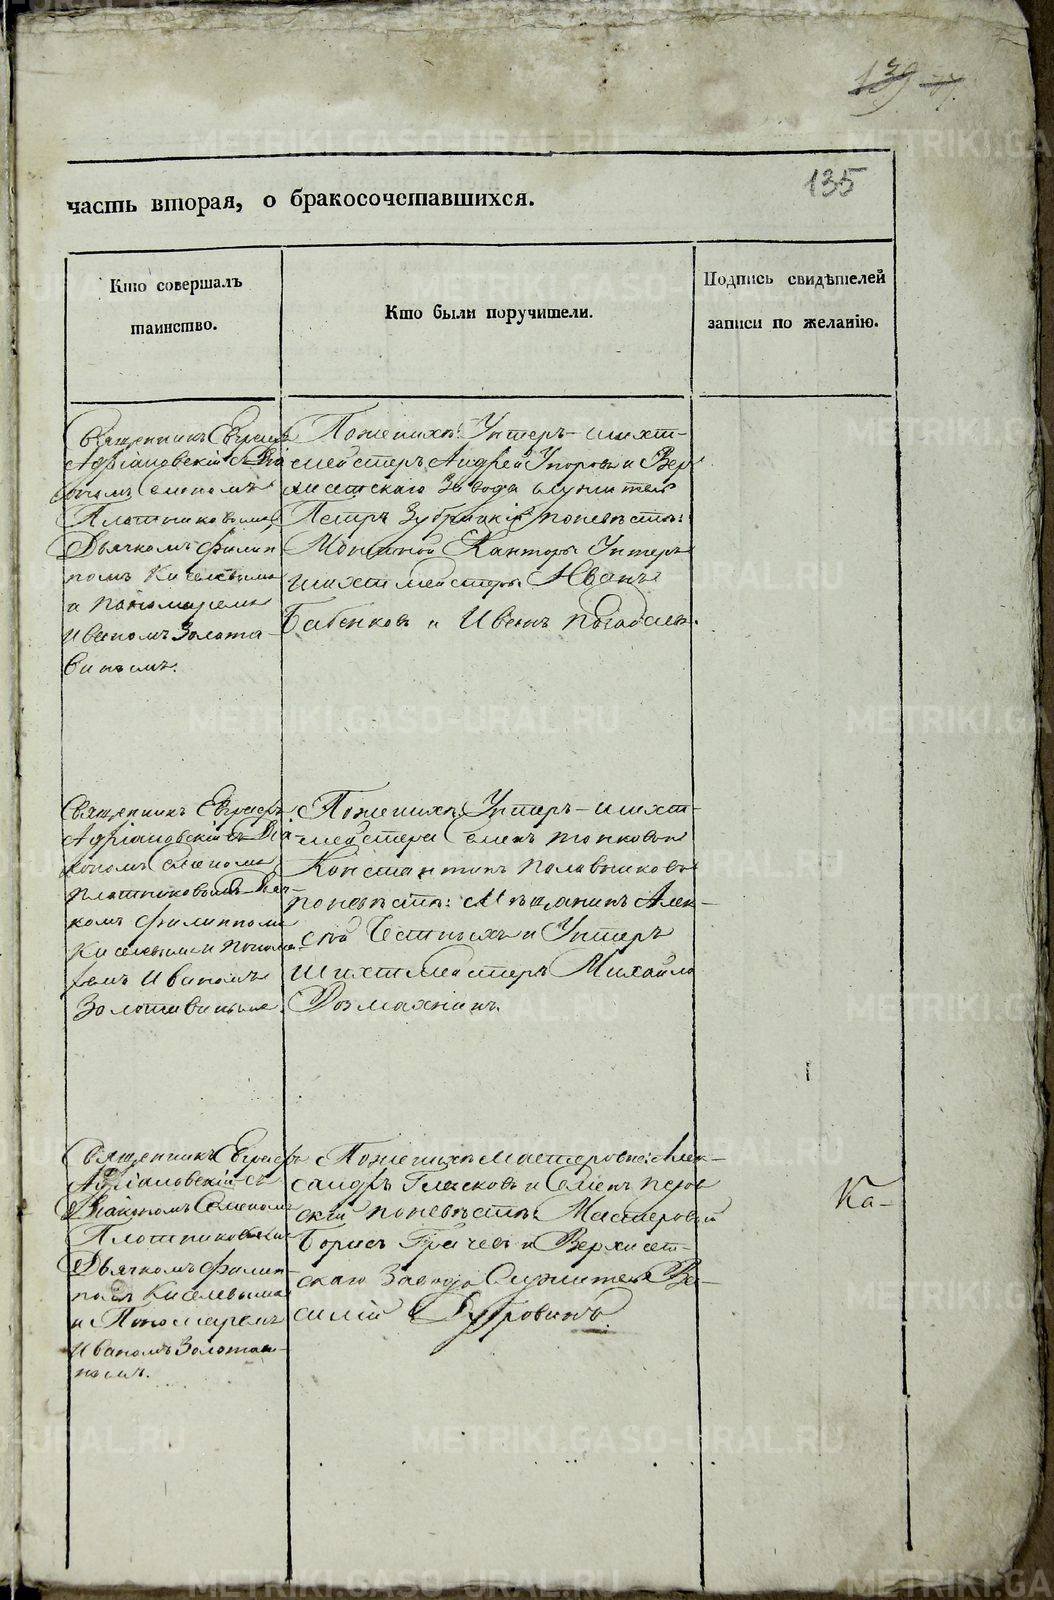 139
135
часть вторая, о бракосочетавшихся.
Кто совершалъ
таинство.
Кто были поручители.
Подпись свидѣтелей
записи по желанію.
Священникъ
Адріановскій
Плотниковымъ
Дьячкомъ Филип
помъ Киселевымъ
и пономаремъ
Иваномъ Золота-
винымъ.
По женихѣ: Унтеръ-шихт-
мейстеръ Андрей и Вер
хисетскаго Завода служитель
Петръ Зубрицкій, по невѣстѣ:
Монетной Канторы Унтеръ
шихтмейстеры Иванъ
Бабенковъ и Иванъ
Священникъ Евграфъ
Адріановскій съ Діа-
кономъ Симеономъ
Плотниковымъ Дьяч-
комъ Филиппомъ
Киселевымъ и понома
ремъ Иваномъ
Золотавинымъ.
По женихѣ Унтеръ-шихт-
мейстера
Константинъ Половниковъ
по невѣстѣ: Мѣщанинъ Алек-
сѣй и Унтеръ
шихтмейстеръ Михайло
Священникъ Евграфъ
Адріановскій съ
Діакономъ Симеономъ
Плотниковымъ
Дьячкомъ Филип-
помъ Киселевымъ
и Пономаремъ
Иваномъ Золотави-
номъ.
По женихѣ мастеровые: Алек-
сандръ Гласковъ и Семенъ Перов
скій по невѣстѣ: Мастеровый
Борисъ и Верхисет-
скаго Завода Служитель Ва-
силій Дубровинъ.
Ка-
METRIKI.GASO-URAL.RU